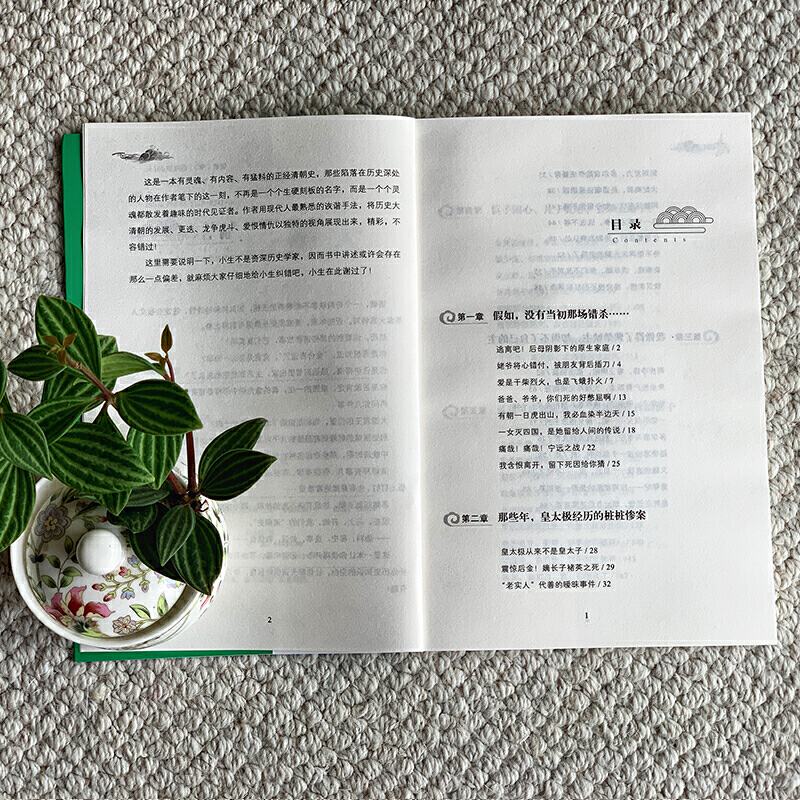 这是一本有灵魂、有内容、有猛料的正经清朝史，那些陷落在历史深处
的人物在作者笔下的这一刻，不再是一个个生硬刻板的名字，而是一个个灵
魂都散发着趣味的时代见证者。作者用现代人最熟悉的诙谐手法，将历史大
清朝的发展、更迭、龙争虎斗、爱恨情仇以独特的视角展现出来，精彩，不
容错过！
这里需要说明一下，小生不是资深历史学家，因而书中讲述或许会存在
那么一点偏差，就麻烦大家仔细地给小生纠错吧，小生在此谢过了！
2
目录
Contents
第一章 假如，没有当初那场错杀……
逃离吧！后母阴影下的原生家庭 / 2
姥爷将心错付，被朋友背后插刀 / 4
爱是干柴烈火，也是飞蛾扑火 / 7
爸爸、爷爷，你们死的好憋屈啊 / 13
有朝一日虎出山，我必血染半边天 / 15
一女灭四国，是她留给人间的传说 / 18
痛哉！痛哉！宁远之战 / 22
我含恨离开，留下死因给你猜 / 25
第二章 那些年，皇太极经历的桩桩惨案
皇太极从来不是皇太子 / 28
震惊后金！嫡长子褚英之死 / 29
“老实人”代善的暧昧事件 / 32
1